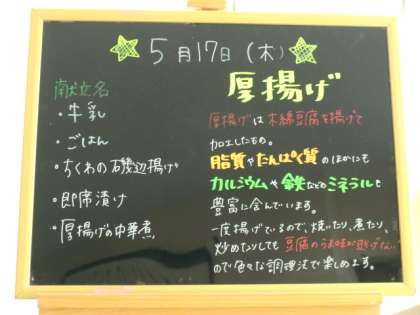 5月17日(木)
献立名
・牛乳
・ごはん
・ちくわの磯辺揚げ
・即席漬け
・厚揚げの中華煮
厚揚げ
厚揚げは木綿豆腐を揚げて
加工したもの。
脂質やたんぱく質のほかにも
カルシウムや鉄などのミネラルも
豊富に含んでいます。
一度揚げているので、焼いたり、煮たり、
炒めたりしても豆腐のうま味が逃げない
ので色々な調理法で楽しめます。